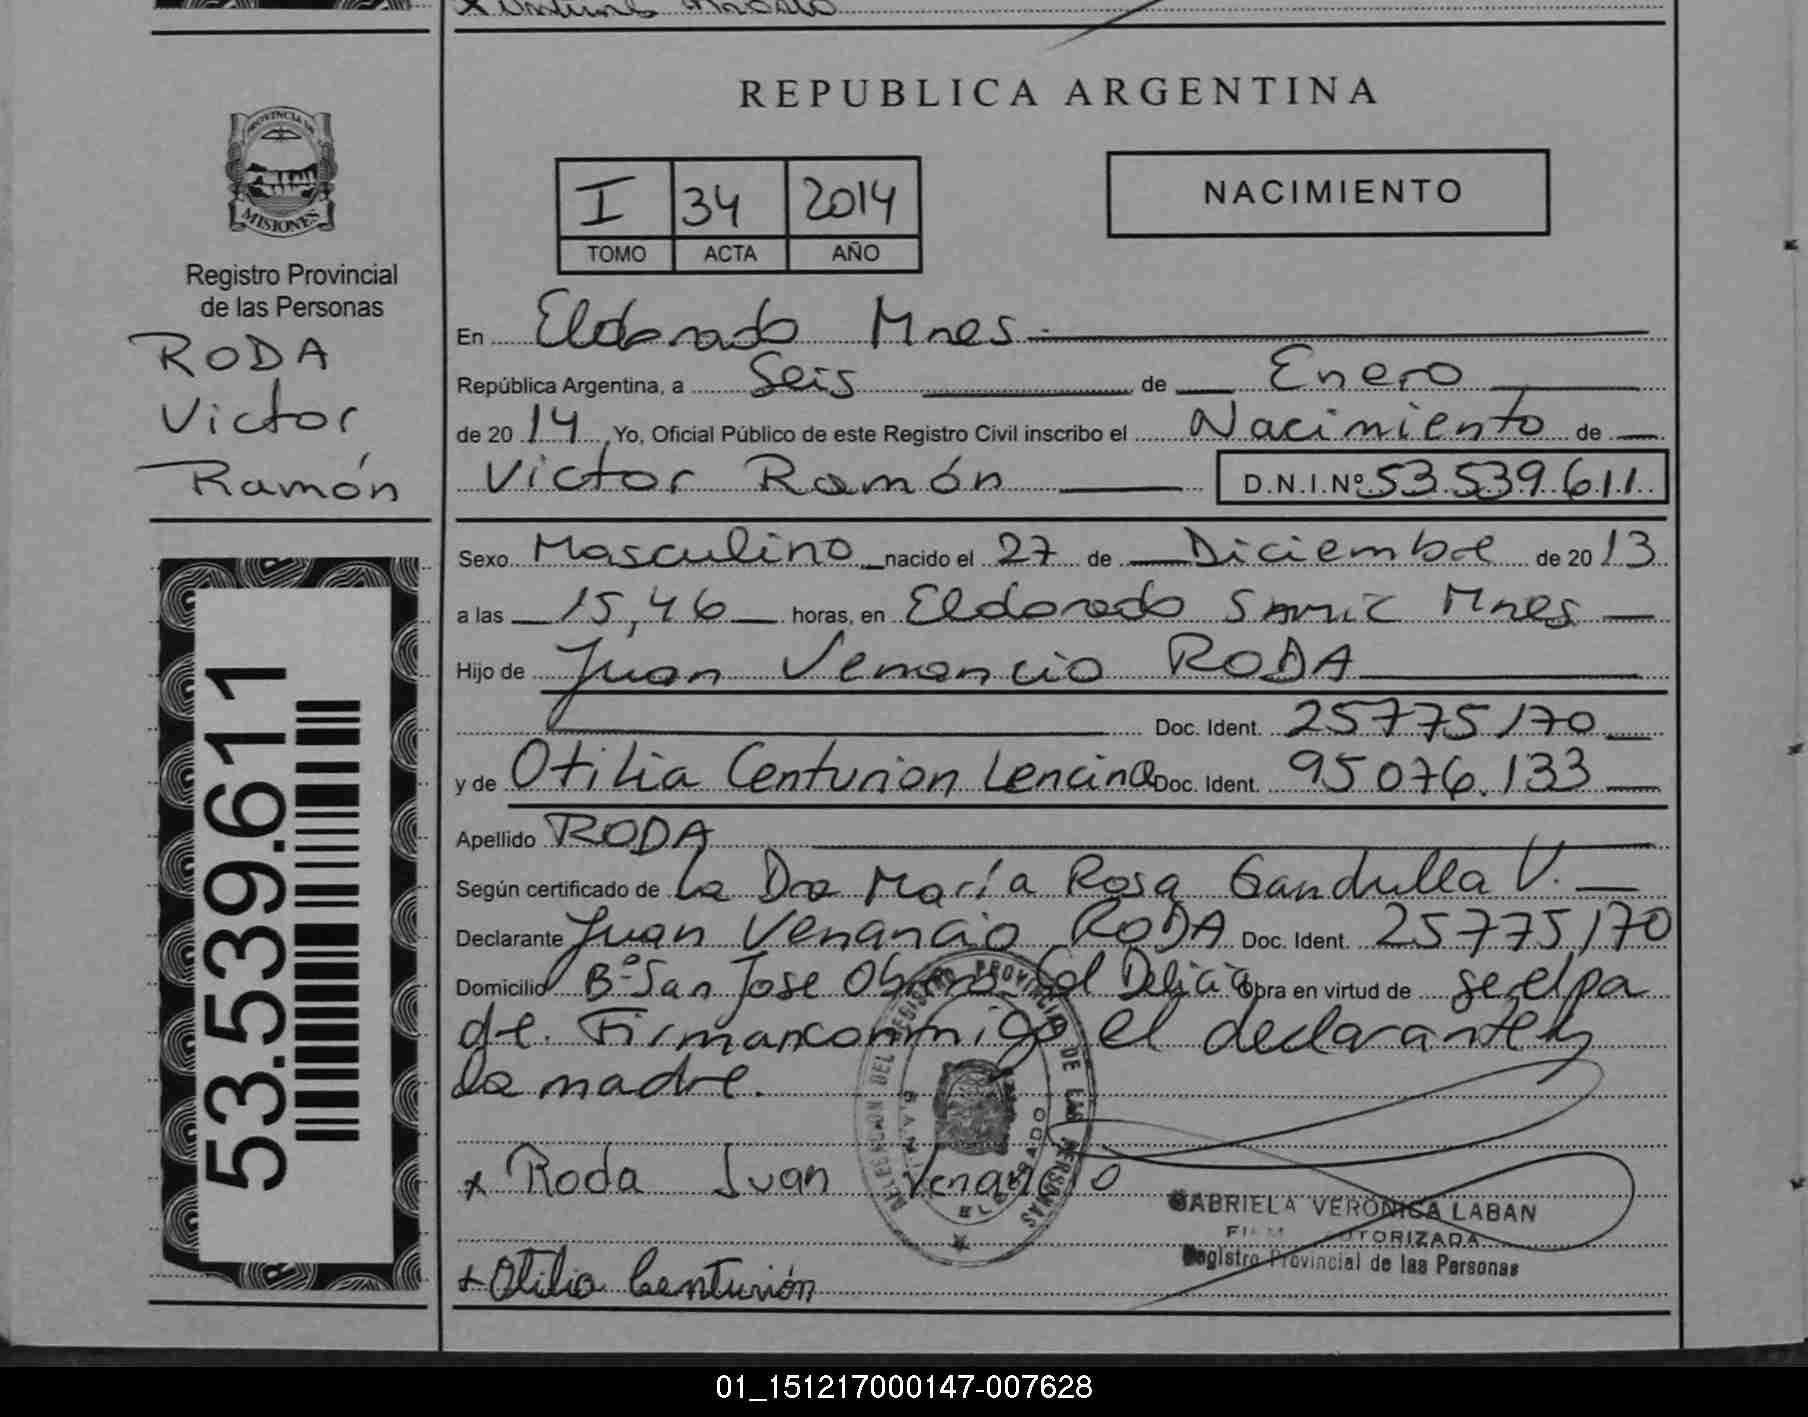 REPUBLICA ARGENTINA
PROVINCIA DE
MISIONES
Registro Provincial
de las Personas
RODA
Victor
Ramón
53.539.611
I 34 2014
TOMO ACTA AÑO
NACIMIENTO
En Eldorado Mnes.
República Argentina, a Seis de Enero
de 2014 Yo, Oficial Público de este Registro Civil inscribo el Nacimiento de
Victor Ramón D.N.I.Nº 53.539.611
Sexo Masculino nacido el 27 de Diciembre de 2013
a las 15,46 horas, en Eldorado Samic Mnes
Hijo de Juan Venancio RODA
Doc. Ident. 25775170
y de Otilia Centurion Lencina Doc. Ident. 95076.133
Apellido RODA
Según certificado de La Dra María Rosa Gandulla V.
Declarante Juan Venancio RODA Doc. Ident. 25775170
Domicilio Bº San Jose Obrero Col Delicia Obra en virtud de ser el pa
dre. Firman conmigo el declarante y
la madre.
DELEGACION DEL REGISTRO PROVINCIAL DE LAS PERSONAS
ELDORADO
x Roda Juan Venancio
GABRIELA VERONICA LABAN
AUTORIZADA
Registro Provincial de las Personas
x Otilia Centurión
01_151217000147-007628